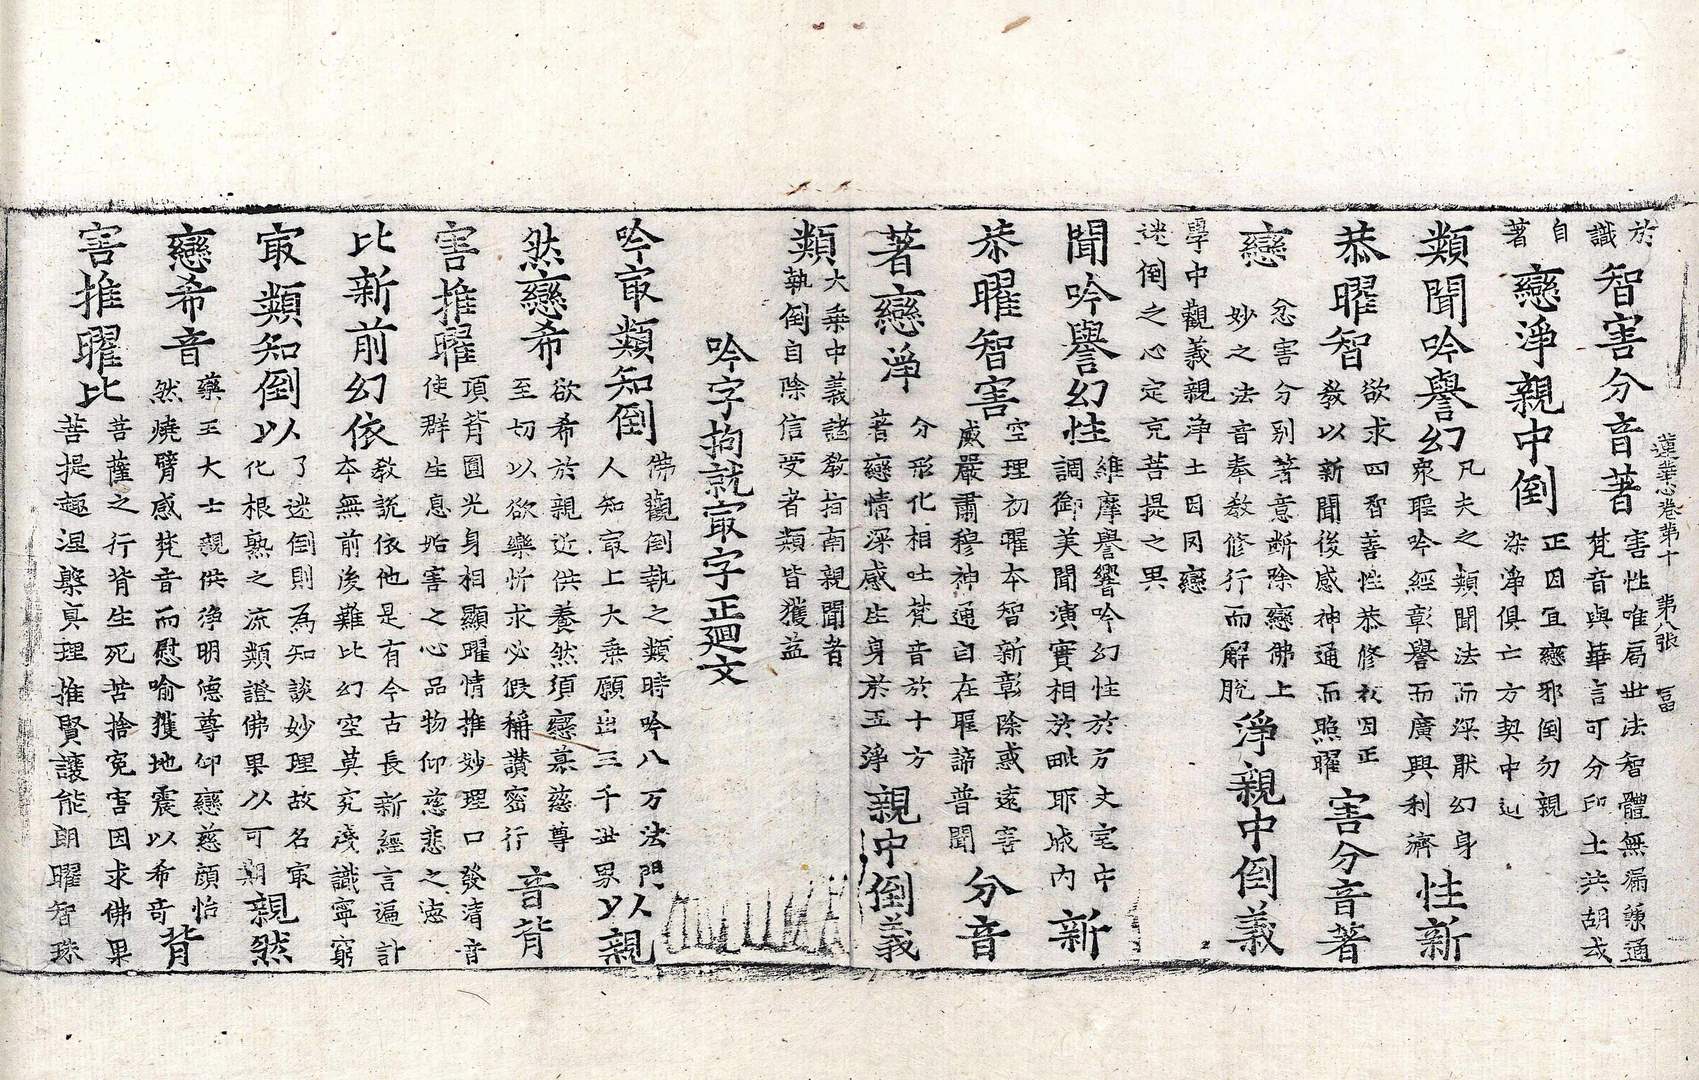 蓮華心卷第十 第八張
於
識
智害分音著
害性唯局世法智體無漏兼通
梵音與華言可分印土共胡或
自
著
戀淨親中倒
正因宜戀邪倒勿親
染淨俱亡方契中辺
類聞吟譽幻
凡夫之類聞法而深厭幻身
衆聖吟經彰譽而廣興利濟
性新
恭曜智
欲求四智善性恭修於因正
教以新聞後感神通而照曜
害分音著
戀
忿害分別著意斷除戀佛上
妙之法音奉教修行而解脫
淨親中倒義
學中觀義親淨土因同戀
迷倒之心定克菩提之果
聞吟譽幻性
維摩譽響吟幻性於方丈室中
調御美聞演實相於毗耶城內
新
恭曜智害
空理初曜本智新彰除惑遠害
威嚴肅穆神通自在聖諦普聞
分音
著戀淨
分形化相吐梵音於十方
著戀情深感生身於五淨
親中倒義
類
大乘中義諸教指南親聞者
執倒自除信受者類皆獲益
吟字拘就㝡字正迴文
吟㝡類知倒
佛觀倒執之類時吟八万法門
人知㝡上大乘願出三千世界
以親
然戀希
欲希於親近供養然須戀慕慈尊
至切以欲樂忻求必假稱讃密行
音背
害推曜
項背圓光身相顯曜情推妙理口發清音
使群生息妬害之心品物仰慈悲之德
比新前幻依
教說依他是有今古長新經言遍計
本無前後難比幻空莫究淺識寧窮
㝡類知倒以
了迷倒則為知談妙理故名㝡
化根熟之流類證佛果以可期
親然
戀希音
藥王大士親供淨明德尊仰戀慈顏怡
然燒臂感梵音而慰喻獲地震以希奇
背
害推曜比
菩薩之行背生死苦捨冤害因求佛果
菩提趣涅槃真理推賢讓能朗曜智珠